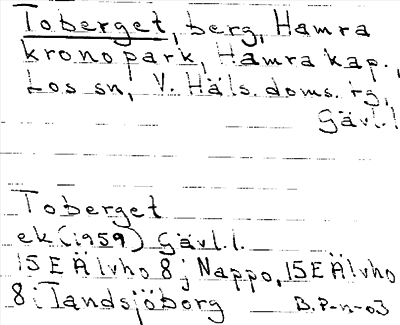 Toberget, berg, Hamra
kronopark, Hamra kap.,
Los sn, V. Häls. doms. rg,
Gävl.l.
Toberget
ek (1959) Gävl.l.
15E Älvho 8j Nappo, 15E Älvho
8i Tandsjöborg B.P-n-03